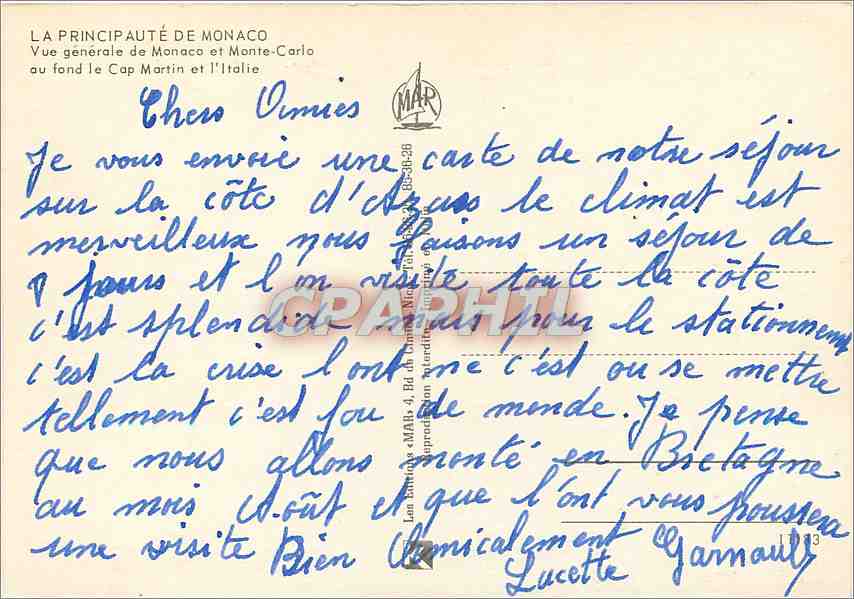 LA PRINCIPAUTÉ DE MONACO
Vue générale de Monaco et Monte-Carlo
au fond le Cap Martin et l'Italie
MAR
Chers Amies
Je vous envoie une carte de notre séjour
sur la côte d'Azurs le climat est
merveilleux nous faisons un séjour de
8 jours et l'on visite toute la côte
c'est splendide mais pour le stationnement
c'est la crise l'ont ne c'est ou se mettre
tellement c'est fou de monde. Je pense
que nous allons monté en Bretagne
au mois Août et que l'ont vous poussera
une visite Bien Amicalement
Lucette Garnault
Les Editions «MAR» 4, Bd de Cimiez Nice Tél. 85-36-26
Reproduction interdite Imprimé en Italie
CPAPHIL